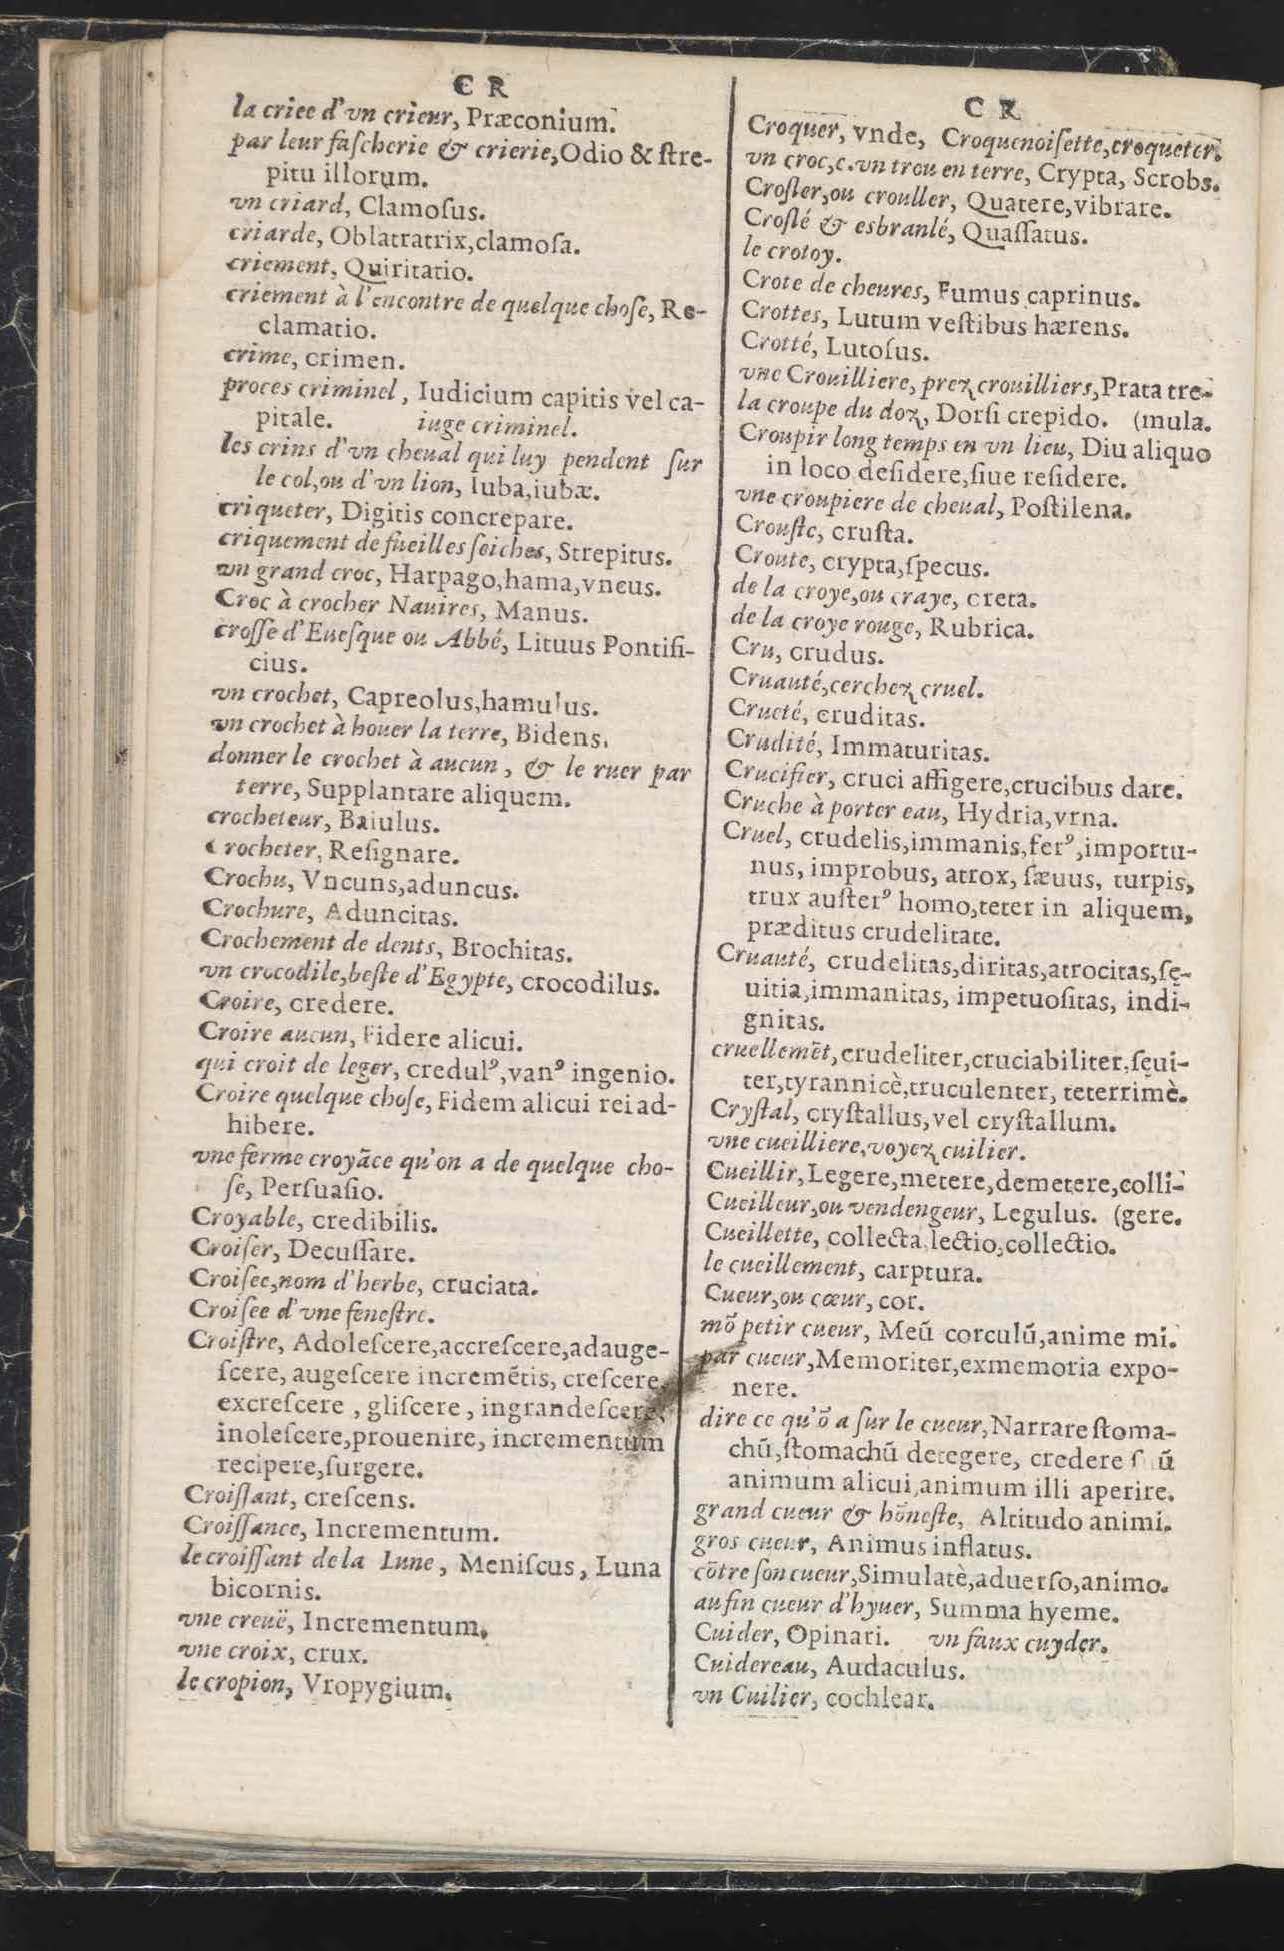 C R
la criee d'vn crieur, Præconium.
par leur faſcherie & crierie, Odio & ſtre-
pitu illorum.
vn criard, Clamoſus.
criarde, Oblatratrix, clamoſa.
criement, Quiritatio.
criement à l'encontre de quelque choſe, Re-
clamatio.
crime, crimen.
proces criminel, Iudicium capitis vel ca-
pitale. iuge criminel.
les crins d'vn cheual qui luy pendent ſur
le col, ou d'vn lion, Iuba, iubæ.
criqueter, Digitis concrepare.
criquement de fueilles ſeiches, Strepitus.
vn grand croc, Harpago, hama, vncus.
Croc à crocher Nauires, Manus.
croſſe d'Eueſque ou Abbé, Lituus Pontifi-
cius.
vn crochet, Capreolus, hamulus.
vn crochet à houer la terre, Bidens.
donner le crochet à aucun, & le ruer par
terre, Supplantare aliquem.
crocheteur, Baiulus.
Crocheter, Reſignare.
Crochu, Vncuns, aduncus.
Crochure, Aduncitas.
Crochement de dents, Brochitas.
vn crocodile, beſte d'Egypte, crocodilus.
Croire, credere.
Croire aucun, Fidere alicui.
qui croit de leger, credulꝰ, vanꝰ ingenio.
Croire quelque choſe, Fidem alicui rei ad-
hibere.
vne ferme croyãce qu'on a de quelque cho-
ſe, Perſuaſio.
Croyable, credibilis.
Croiſer, Decuſſare.
Croiſee, nom d'herbe, cruciata.
Croiſee d'vne feneſtre.
Croiſtre, Adoleſcere, accreſcere, adauge-
ſcere, augeſcere incremẽtis, creſcere,
excreſcere, gliſcere, ingrandeſcere,
inoleſcere, prouenire, incrementum
recipere, ſurgere.
Croiſſant, creſcens.
Croiſſance, Incrementum.
le croiſſant de la Lune, Meniſcus, Luna
bicornis.
vne creuë, Incrementum.
vne croix, crux.
le cropion, Vropygium.
C R
Croquer, vnde, Croquenoiſette, croqueter.
vn croc, c. vn trou en terre, Crypta, Scrobs.
Croſler, ou crouller, Quatere, vibrare.
Croſlé & esbranlé, Quaſſatus.
le crotoy.
Crote de cheures, Fumus caprinus.
Crottes, Lutum veſtibus hærens.
Crotté, Lutoſus.
vne Crouilliere, prez crouilliers, Prata tre-
la croupe du doz, Dorſi crepido. (mula.
Croupir long temps en vn lieu, Diu aliquo
in loco deſidere, ſiue reſidere.
vne croupiere de cheual, Poſtilena.
Crouſte, cruſta.
Croute, crypta, ſpecus.
de la croye, ou craye, creta.
de la croye rouge, Rubrica.
Cru, crudus.
Cruauté, cerchez cruel.
Crueté, cruditas.
Crudité, Immaturitas.
Crucifier, cruci affigere, crucibus dare.
Cruche à porter eau, Hydria, vrna.
Cruel, crudelis, immanis, ferꝰ, importu-
nus, improbus, atrox, ſæuus, turpis,
trux auſterꝰ homo, teter in aliquem,
præditus crudelitate.
Cruauté, crudelitas, diritas, atrocitas, ſę-
uitia, immanitas, impetuoſitas, indi-
gnitas.
cruellemẽt, crudeliter, cruciabiliter, ſęui-
ter, tyrannicè, truculenter, teterrimè.
Cryſtal, cryſtallus, vel cryſtallum.
vne cueilliere, voyez cuilier.
Cueillir, Legere, metere, demetere, colli-
Cueilleur, ou vendengeur, Legulus. (gere.
Cueillette, collecta, lectio, collectio.
le cueillement, carptura.
Cueur, ou cœur, cor.
mõ petit cueur, Meũ corculũ, anime mi.
par cueur, Memoriter, exmemoria expo-
nere.
dire ce qu'õ a ſur le cueur, Narrare ſtoma-
chũ, ſtomachũ detegere, credere ſuũ
animum alicui, animum illi aperire.
grand cueur & hõneſte, Altitudo animi.
gros cueur, Animus inflatus.
cõtre ſon cueur, Simulatè, aduerſo, animo.
au fin cueur d'hyuer, Summa hyeme.
Cuider, Opinari. vn faux cuyder.
Cuidereau, Audaculus.
vn Cuilier, cochlear.